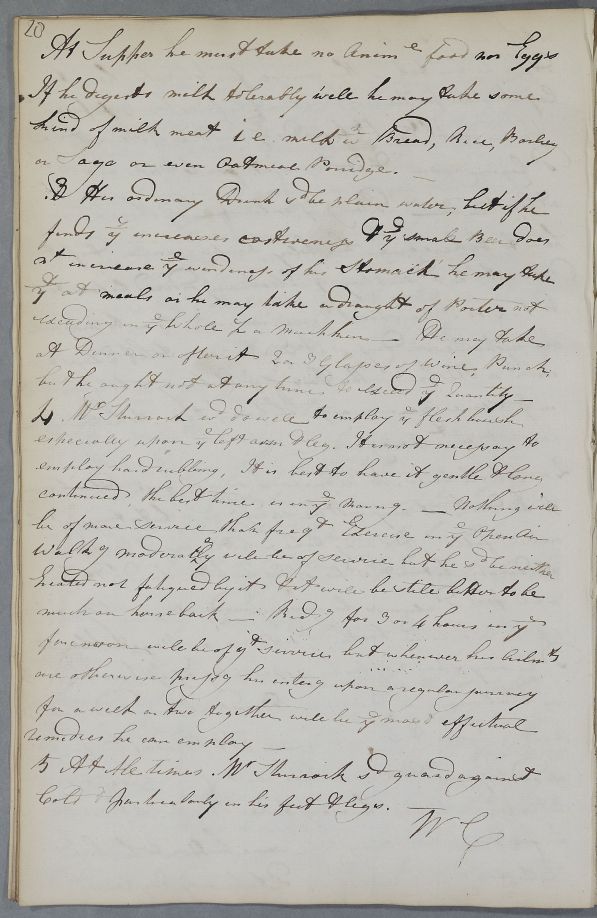 20
At Supper he must take no Anime food nor Eggs
If he digests milk tolerably well he may take some
kind of milk meat i e milk w Bread, Rice, Barley
or Sago or even Oatmeal Porridge. —
3 His ordinary Drink sd be plain water, but if he
finds yt increases costiveness & ye small Beer does
nt increase ye windiness of his Stomach he may take
yt at meals or he may take a draught of Porter not
exceeding in ye whole a mutchkin — He may take
at Dinner or after it 2 or 3 Glasses of Wine, Punch,
but he ought not at any time to exceed yt Quantity
4 Mr Sturrock wd do well to employ ye flesh brush
especially upon ye left arm & leg. It is not necessary to
employ hard rubbing, It is best to have it gentle & long
continued, the best time is in ye morng. — Nothing will
be of more service than freqt Exercise in ye Open Air
Walkg moderately will be of service but he sd be neither
heated nor fatigued by it & it will be still better to be
much on horse back — Ridg for 3 or 4 hours in ye
forenoon will be of gt service but whenever his ailmts
are otherwise his enterg upon a regular journey
for a week or two together will be ye most effectual
remedies he can employ —
5 At All times Mr Sturrock sd guard against
Cold & particularly in his feet & legs. —
WC